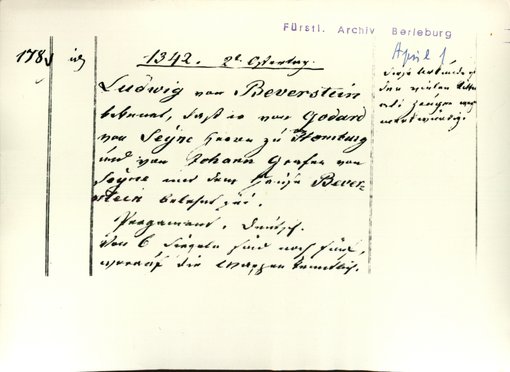 Fürstl. Archiv Berleburg
April 1
178
1342. 2t. Ostertag.
Ludwig von Beverstein
bekennt, daß er von Godard
von Seyne Herrn zu Homburg
und von Johann Grafen von
Seyne mit dem Hause Bever-
stein belehnt sei.
Pergament, Deutsch.
Von 6 Siegeln sind noch fünf,
worauf die Wappen kenntlich.
diese Urkunde ist
den vielen
als Zeugen
merkwürdig.